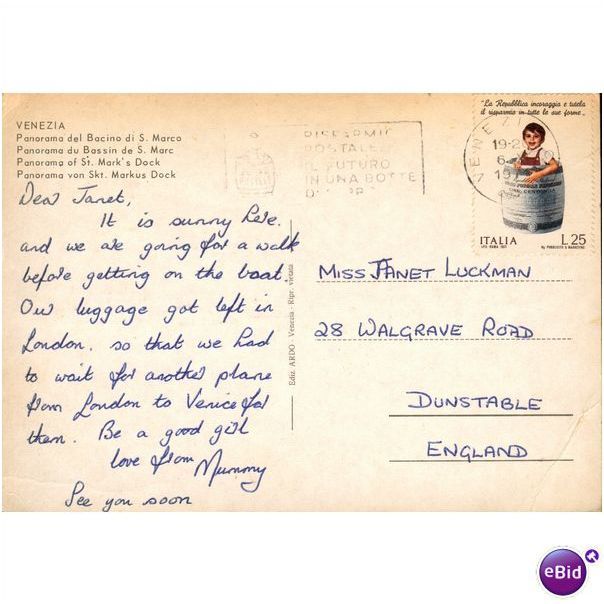 VENEZIA
Panorama del Bacino di S. Marco
Panorama du Bassin de S. Marc
Panorama of St. Mark's Dock
Panorama von Skt. Markus Dock
Dear Janet,
It is sunny here.
and we are going for a walk
before getting on the boat.
Our luggage got left in
London. so that we had
to wait for another plane
from London to Venice for
them. Be a good girl
love from Mummy
See you soon
Ediz. ARDO - Venezia - Ripr. vietata
RISPARMIO
POSTALE
IL FUTURO
IN UNA BOTTE
VENEZIA
19-2
6
19
"La Repubblica incoraggia e tutela
il risparmio in tutte le sue forme"
ITALIA
L.25
MISS JANET LUCKMAN
28 WALGRAVE ROAD
DUNSTABLE
ENGLAND
eBid